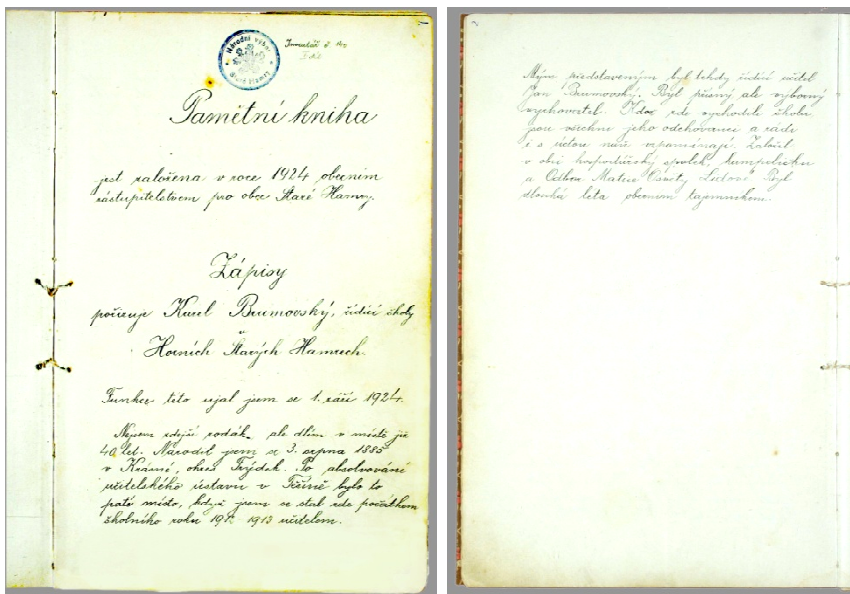 Národní výbor
Staré Hamry
Inventář č.
Pamětní kniha
jest založena v roce 1924 obecním
zastupitelstvem pro obec Staré Hamry.
Zápisy
pořizuje Karel Brumovský, řídící školy
Horních Starých Hamrech.
Funkce této ujal jsem se 1. září 1924.
Nejsem zdejší rodák, ale dlím v místě již
40 let. Narodil jsem se 3. srpna 1885
v Krásné, okres Frýdek. Po absolvování
učitelského ústavu v Těšíně bylo to
páté místo, když jsem se stal zde počátkem
školního roku 1912-1913 učitelem.
Mým představeným byl tehdy řídící učitel
Jan Brumovský. Byl přísný ale výborný
vychovatel. Kdož zde vychodili školu
jsou všichni jeho odchovanci a rádi
i s úctou naň vzpomínají. Založil
v obci hospodářský spolek, kampeličku
a Odbor Matice Osvěty Lidové. Byl
dlouhá léta obecním tajemníkem.